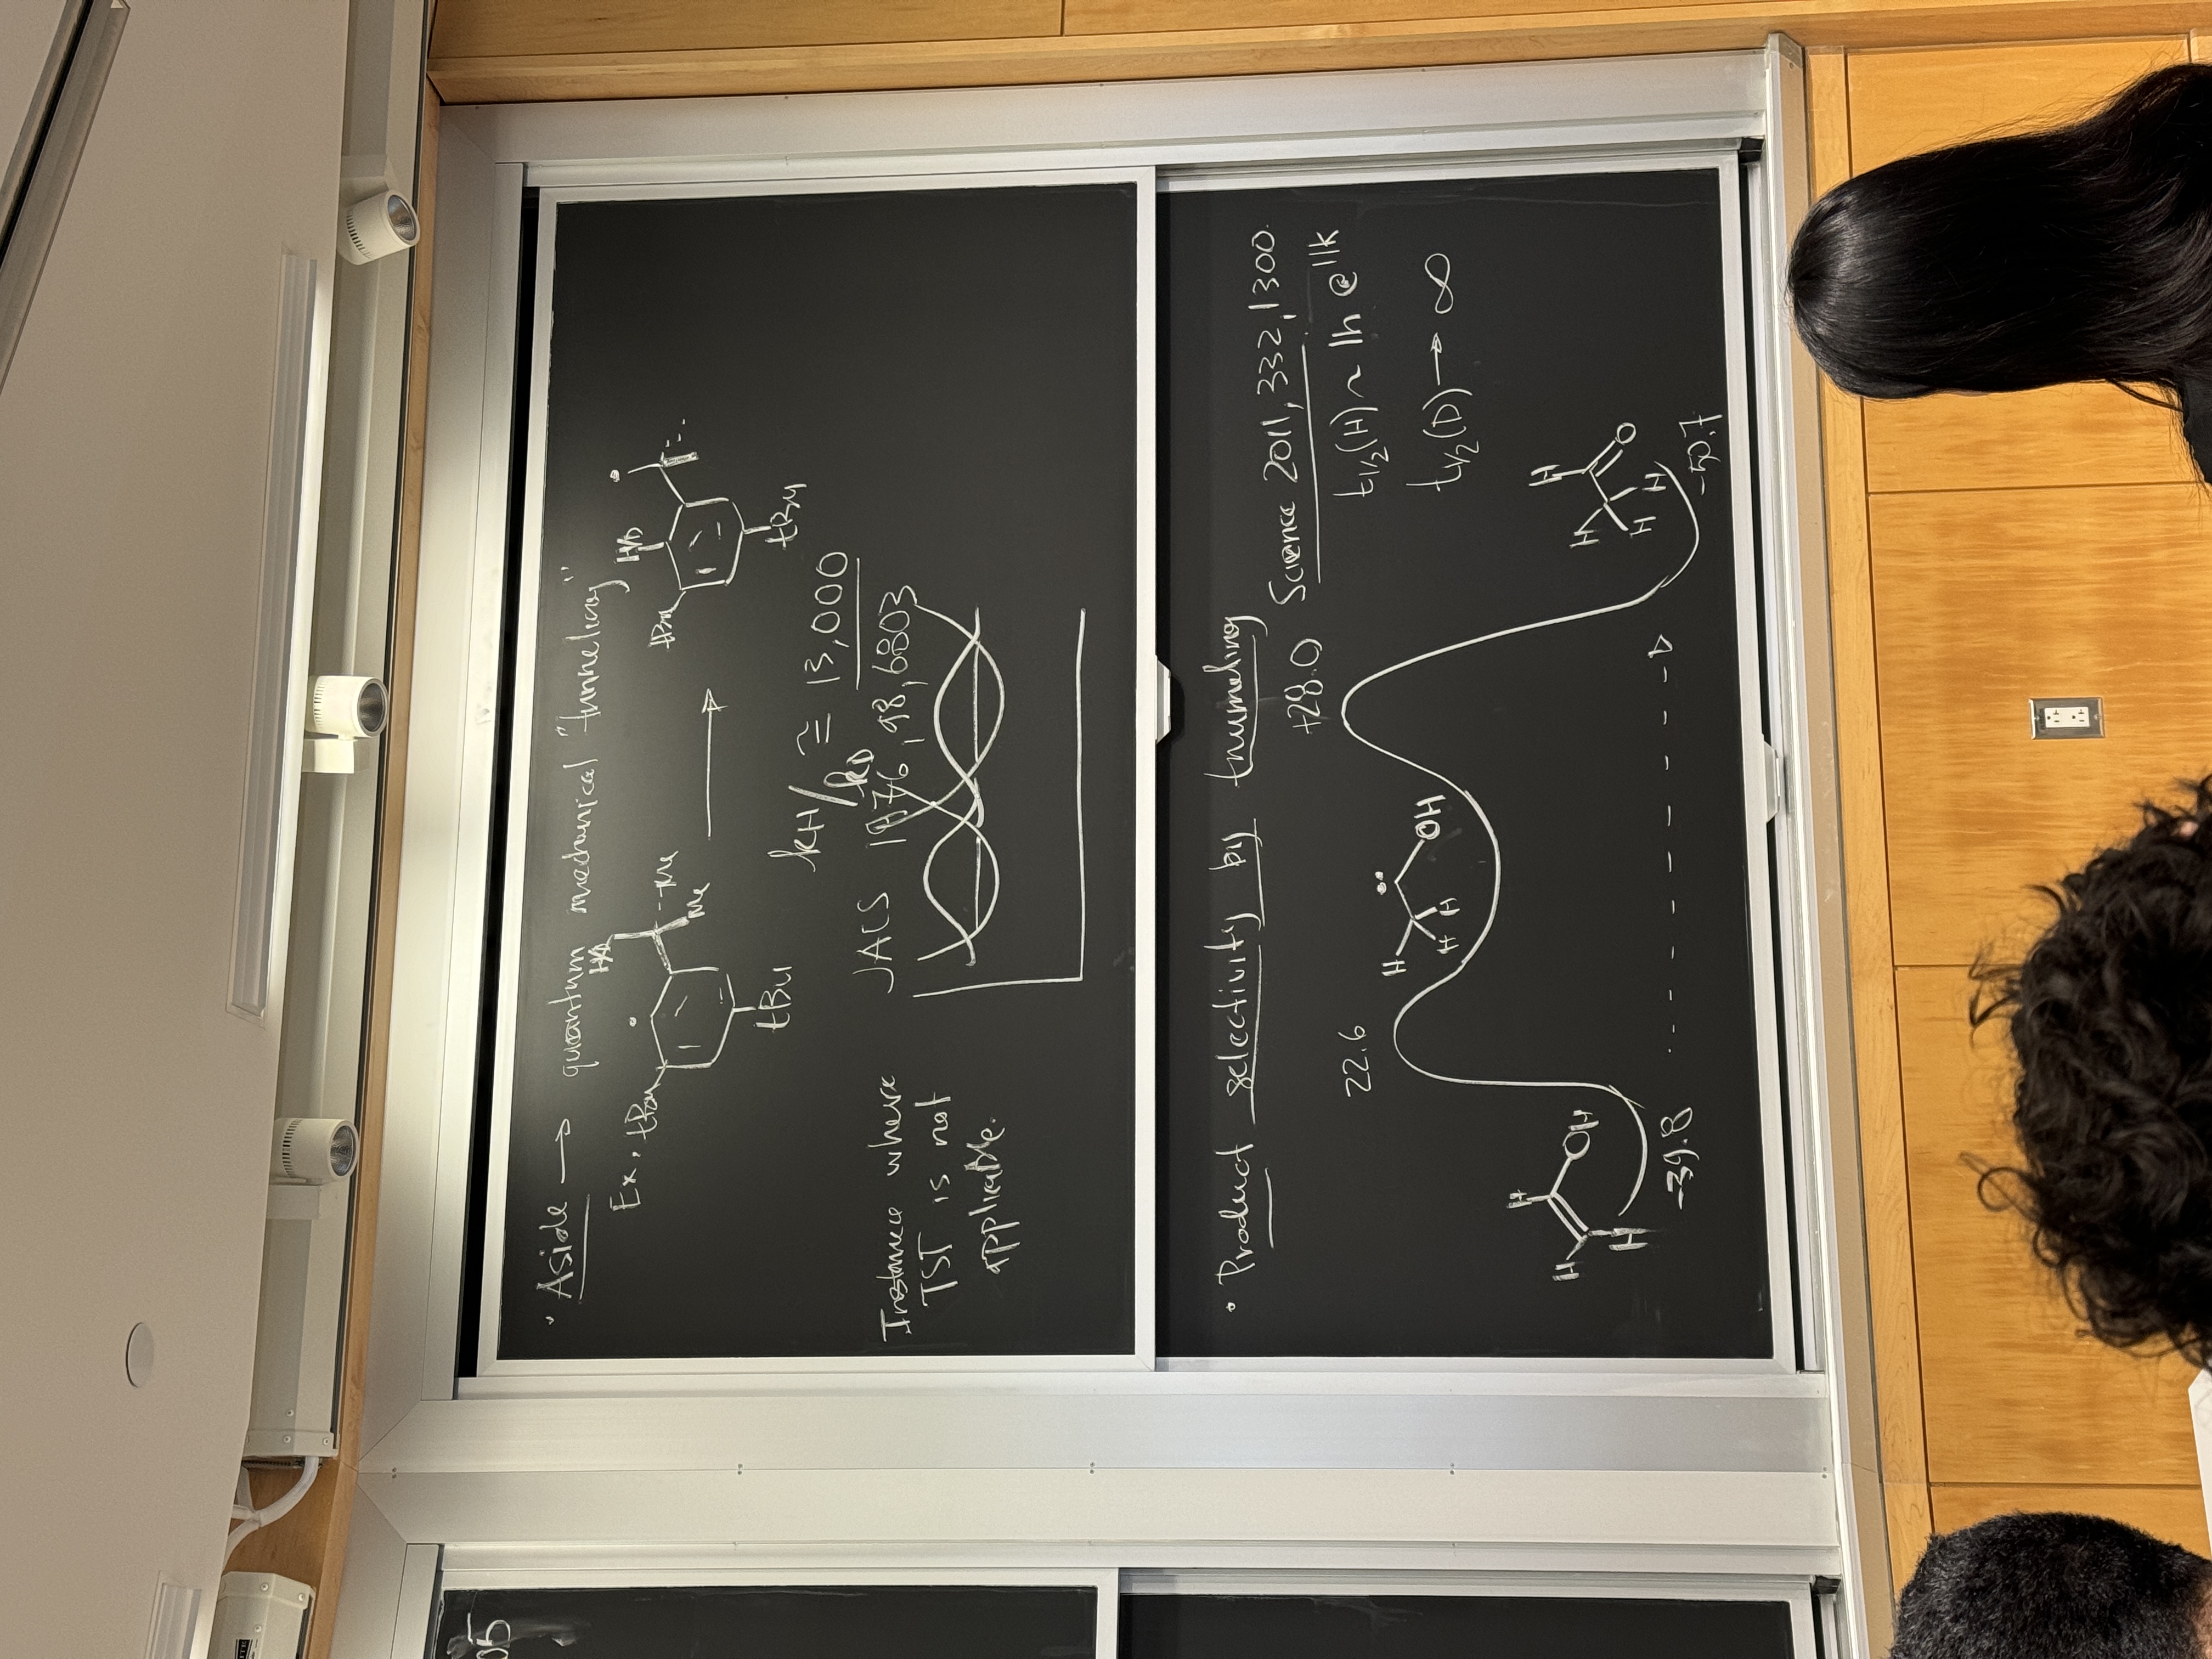 05
· Aside → quantum mechanical "tunneling"
Ex.
tBu
H/D
Me
Me
tBu
H/D
tBu
tBu
kH/kD ≅ 13,000
JACS 1976, 98, 6803
Instance where
TST is not
applicable.
· Product selectivity by tnumeling
Science 2011, 332, 1300.
t1/2(H) ~ 1h @ 11k
t1/2(D) → ∞
22.6
+28.0
H
H
H
OH
H
H
H
OH
-39.8
H
H
H
H
O
-50.7